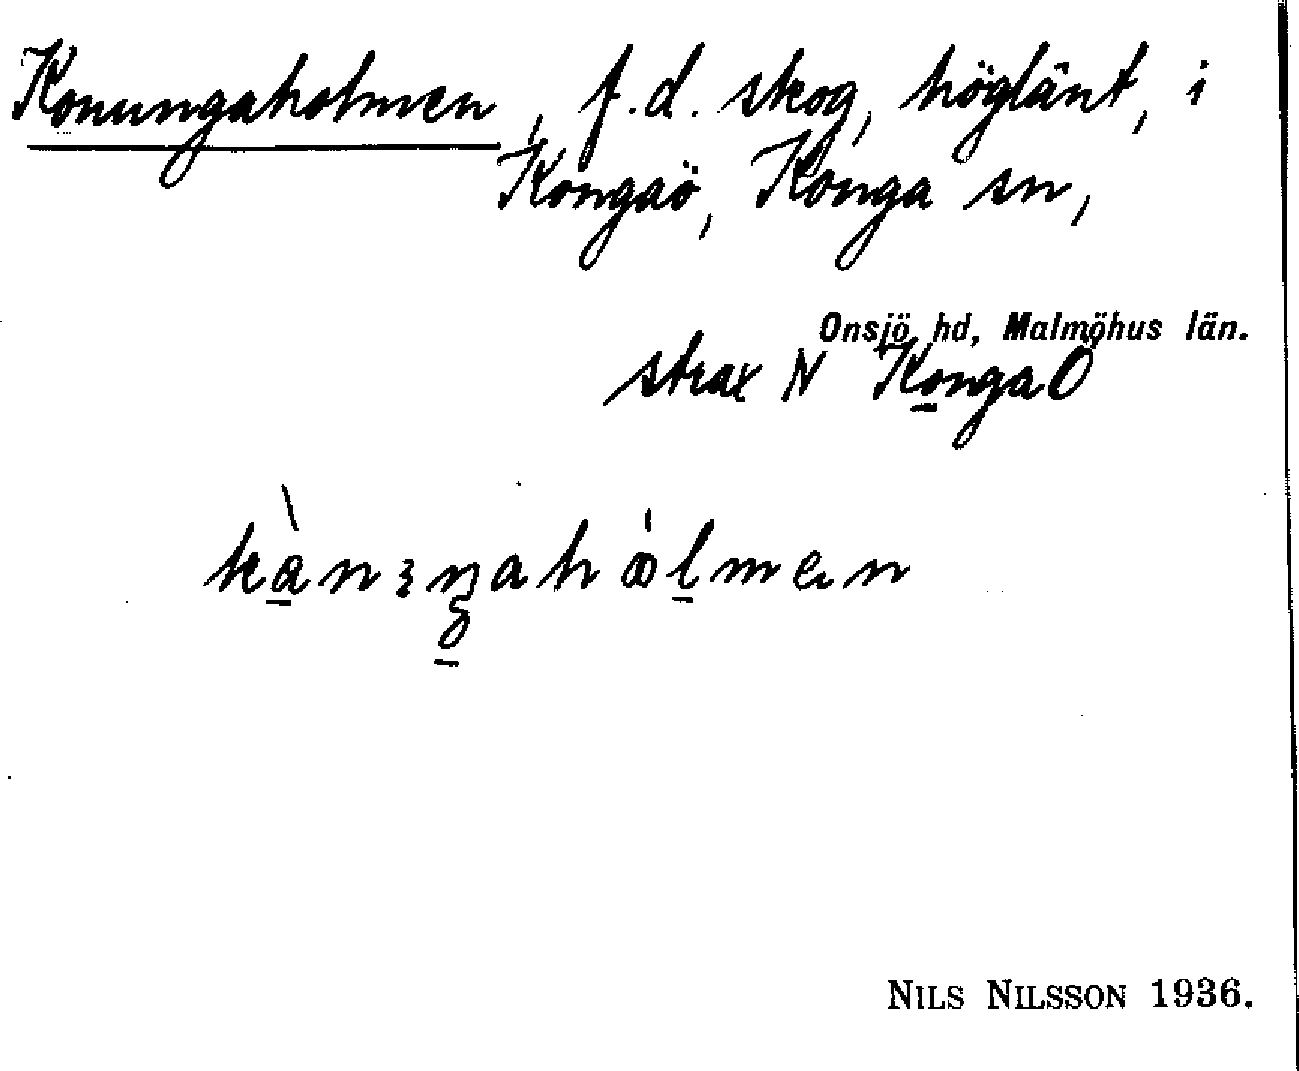 Konungaholmen, f.d. skog, höglänt, i
Kongaö, Konga sn,
Onsjö hd, Malmöhus län.
strax N Konga Ö
NILS NILSSON 1936.